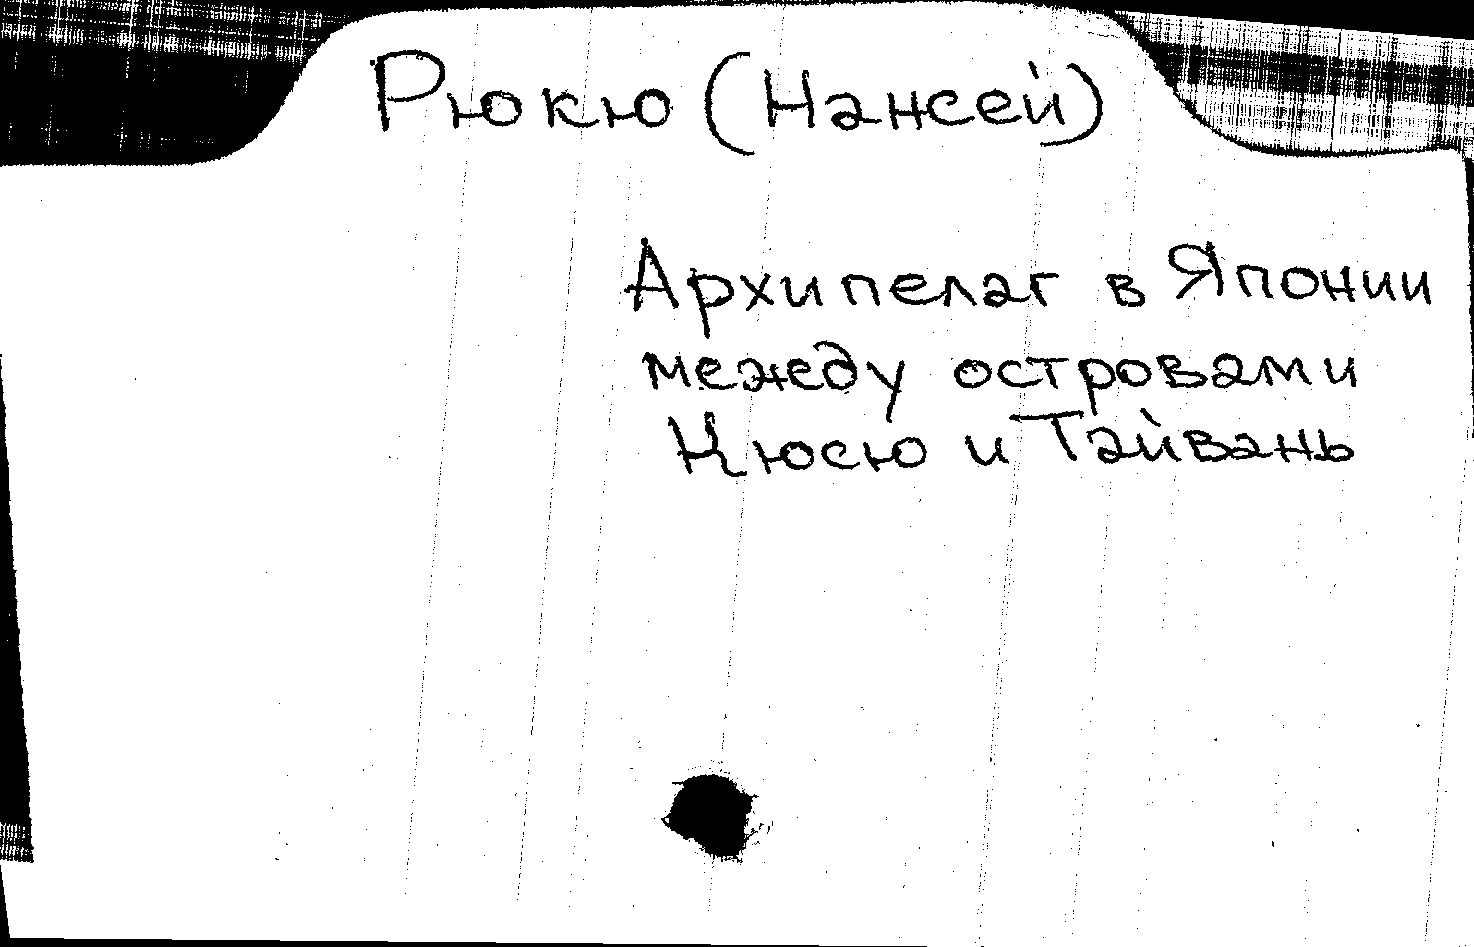 Рюкю (Нансей)
Архипелаг в Японии
между островами
Кюсю и Тайвань